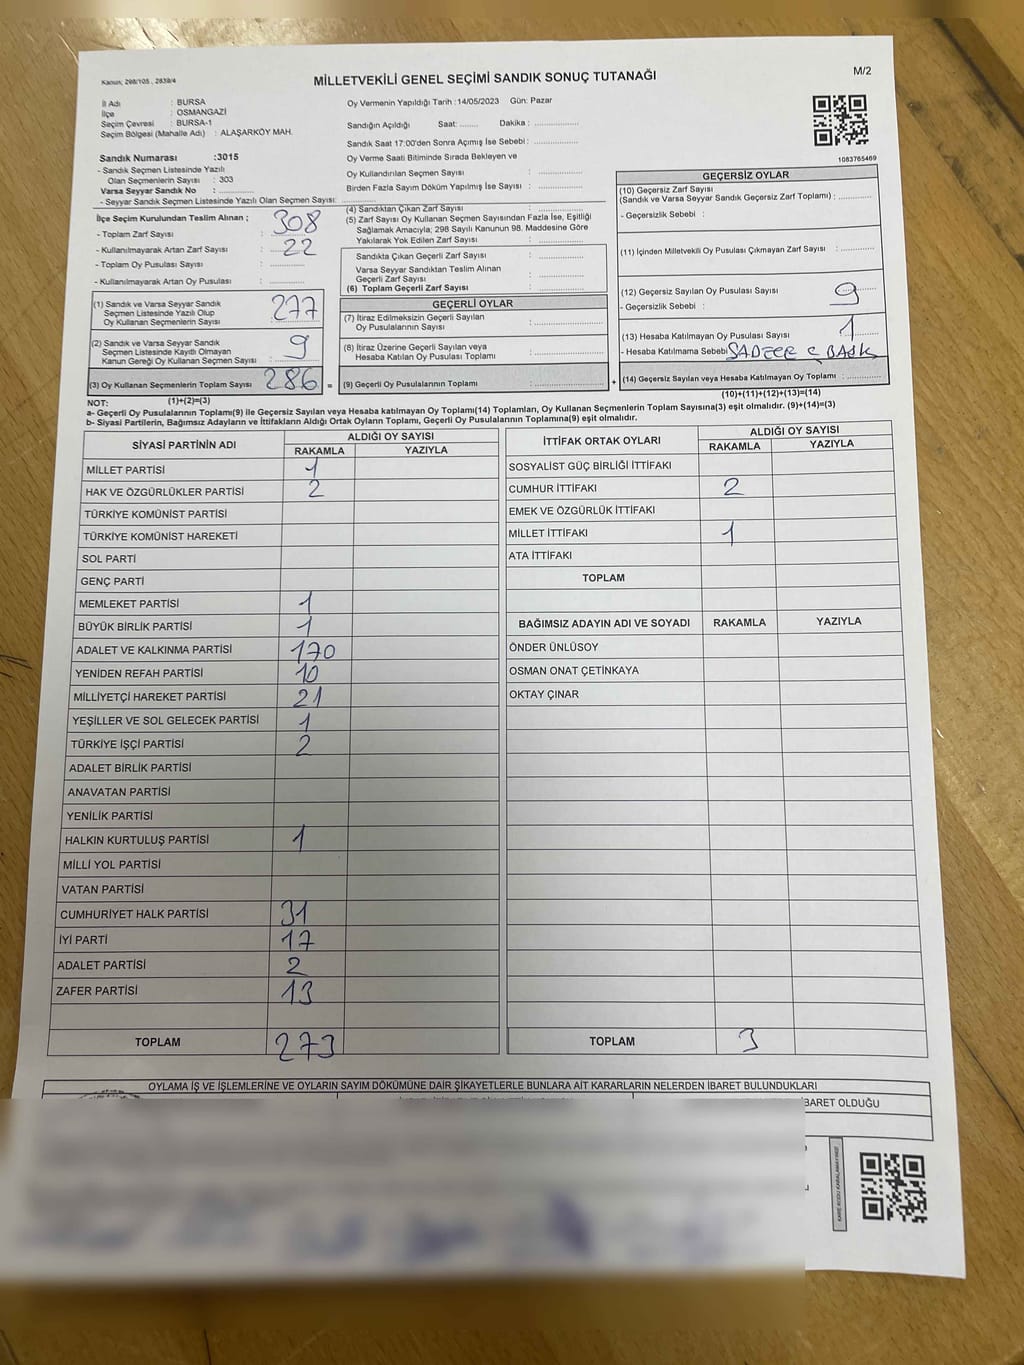 Kanun, 298/105 , 2839/4
MİLLETVEKİLİ GENEL SEÇİMİ SANDIK SONUÇ TUTANAĞI
M/2
İl Adı : BURSA
İlçe : OSMANGAZİ
Seçim Çevresi : BURSA-1
Seçim Bölgesi (Mahalle Adı) : ALAŞARKÖY MAH.
Sandık Numarası :3015
- Sandık Seçmen Listesinde Yazılı
Olan Seçmenlerin Sayısı : 303
Varsa Seyyar Sandık No : ..............
- Seyyar Sandık Seçmen Listesinde Yazılı Olan Seçmen Sayısı: ..............
Oy Vermenin Yapıldığı Tarih :14/05/2023 Gün: Pazar
Sandığın Açıldığı Saat: ........ Dakika : ..................
Sandık Saat 17:00'den Sonra Açımış İse Sebebi : ..................
Oy Verme Saati Bitiminde Sırada Bekleyen ve
Oy Kullandırılan Seçmen Sayısı : ..................
Birden Fazla Sayım Döküm Yapılmış İse Sayısı : ..................
1083765469
İlçe Seçim Kurulundan Teslim Alınan ;
- Toplam Zarf Sayısı : 308
- Kullanılmayarak Artan Zarf Sayısı : 22
- Toplam Oy Pusulası Sayısı : ..............
- Kullanılmayarak Artan Oy Pusulası : ..............
(1) Sandık ve Varsa Seyyar Sandık
Seçmen Listesinde Yazılı Olup
Oy Kullanan Seçmenlerin Sayısı : 277
(2) Sandık ve Varsa Seyyar Sandık
Seçmen Listesinde Kayıtlı Olmayan
Kanun Gereği Oy Kullanan Seçmen Sayısı : 9
(3) Oy Kullanan Seçmenlerin Toplam Sayısı : 286 =
(1)+(2)=(3)
(4) Sandıktan Çıkan Zarf Sayısı : ..............
(5) Zarf Sayısı Oy Kullanan Seçmen Sayısından Fazla İse, Eşitliği
Sağlamak Amacıyla; 298 Sayılı Kanunun 98. Maddesine Göre
Yakılarak Yok Edilen Zarf Sayısı : ..............
Sandıkta Çıkan Geçerli Zarf Sayısı : ..............
Varsa Seyyar Sandıktan Teslim Alınan
Geçerli Zarf Sayısı : ..............
(6) Toplam Geçerli Zarf Sayısı : ..............
GEÇERLİ OYLAR
(7) İtiraz Edilmeksizin Geçerli Sayılan
Oy Pusulalarının Sayısı : ..............
(8) İtiraz Üzerine Geçerli Sayılan veya
Hesaba Katılan Oy Pusulası Toplamı : ..............
(9) Geçerli Oy Pusulalarının Toplamı : .............. +
GEÇERSİZ OYLAR
(10) Geçersiz Zarf Sayısı
(Sandık ve Varsa Seyyar Sandık Geçersiz Zarf Toplamı) : ..............
- Geçersizlik Sebebi :
(11) İçinden Milletvekili Oy Pusulası Çıkmayan Zarf Sayısı : ..............
(12) Geçersiz Sayılan Oy Pusulası Sayısı : 9
- Geçersizlik Sebebi :
(13) Hesaba Katılmayan Oy Pusulası Sayısı : 1
- Hesaba Katılmama Sebebi
(14) Geçersiz Sayılan veya Hesaba Katılmayan Oy Toplamı : ..............
(10)+(11)+(12)+(13)=(14)
NOT:
a- Geçerli Oy Pusulalarının Toplamı(9) ile Geçersiz Sayılan veya Hesaba katılmayan Oy Toplamı(14) Toplamları, Oy Kullanan Seçmenlerin Toplam Sayısına(3) eşit olmalıdır. (9)+(14)=(3)
b- Siyasi Partilerin, Bağımsız Adayların ve İttifakların Aldığı Ortak Oyların Toplamı, Geçerli Oy Pusulalarının Toplamına(9) eşit olmalıdır.
SİYASİ PARTİNİN ADI ALDIĞI OY SAYISI
RAKAMLA YAZIYLA
MİLLET PARTİSİ 1
HAK VE ÖZGÜRLÜKLER PARTİSİ 2
TÜRKİYE KOMÜNİST PARTİSİ
TÜRKİYE KOMÜNİST HAREKETİ
SOL PARTİ
GENÇ PARTİ
MEMLEKET PARTİSİ 1
BÜYÜK BİRLİK PARTİSİ 1
ADALET VE KALKINMA PARTİSİ 170
YENİDEN REFAH PARTİSİ 10
MİLLİYETÇİ HAREKET PARTİSİ 21
YEŞİLLER VE SOL GELECEK PARTİSİ 1
TÜRKİYE İŞÇİ PARTİSİ 2
ADALET BİRLİK PARTİSİ
ANAVATAN PARTİSİ
YENİLİK PARTİSİ
HALKIN KURTULUŞ PARTİSİ 1
MİLLİ YOL PARTİSİ
VATAN PARTİSİ
CUMHURİYET HALK PARTİSİ 31
İYİ PARTİ 17
ADALET PARTİSİ 2
ZAFER PARTİSİ 13
TOPLAM 273
İTTİFAK ORTAK OYLARI ALDIĞI OY SAYISI
RAKAMLA YAZIYLA
SOSYALİST GÜÇ BİRLİĞİ İTTİFAKI
CUMHUR İTTİFAKI 2
EMEK VE ÖZGÜRLÜK İTTİFAKI
MİLLET İTTİFAKI 1
ATA İTTİFAKI
TOPLAM
BAĞIMSIZ ADAYIN ADI VE SOYADI RAKAMLA YAZIYLA
ÖNDER ÜNLÜSOY
OSMAN ONAT ÇETİNKAYA
OKTAY ÇINAR
TOPLAM 3
OYLAMA İŞ VE İŞLEMLERİNE VE OYLARIN SAYIM DÖKÜMÜNE DAİR ŞİKAYETLERLE BUNLARA AİT KARARLARIN NELERDEN İBARET BULUNDUKLARI
İBARET OLDUĞU
KARE KODU KARALAMAYINIZ!